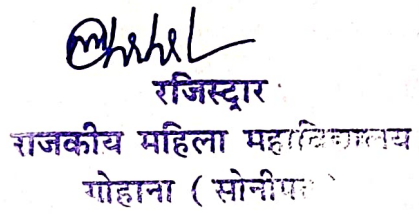 रजिस्ट्रार
राजकीय महिला महाविद्यालय
गोहाना ( सोनीपत